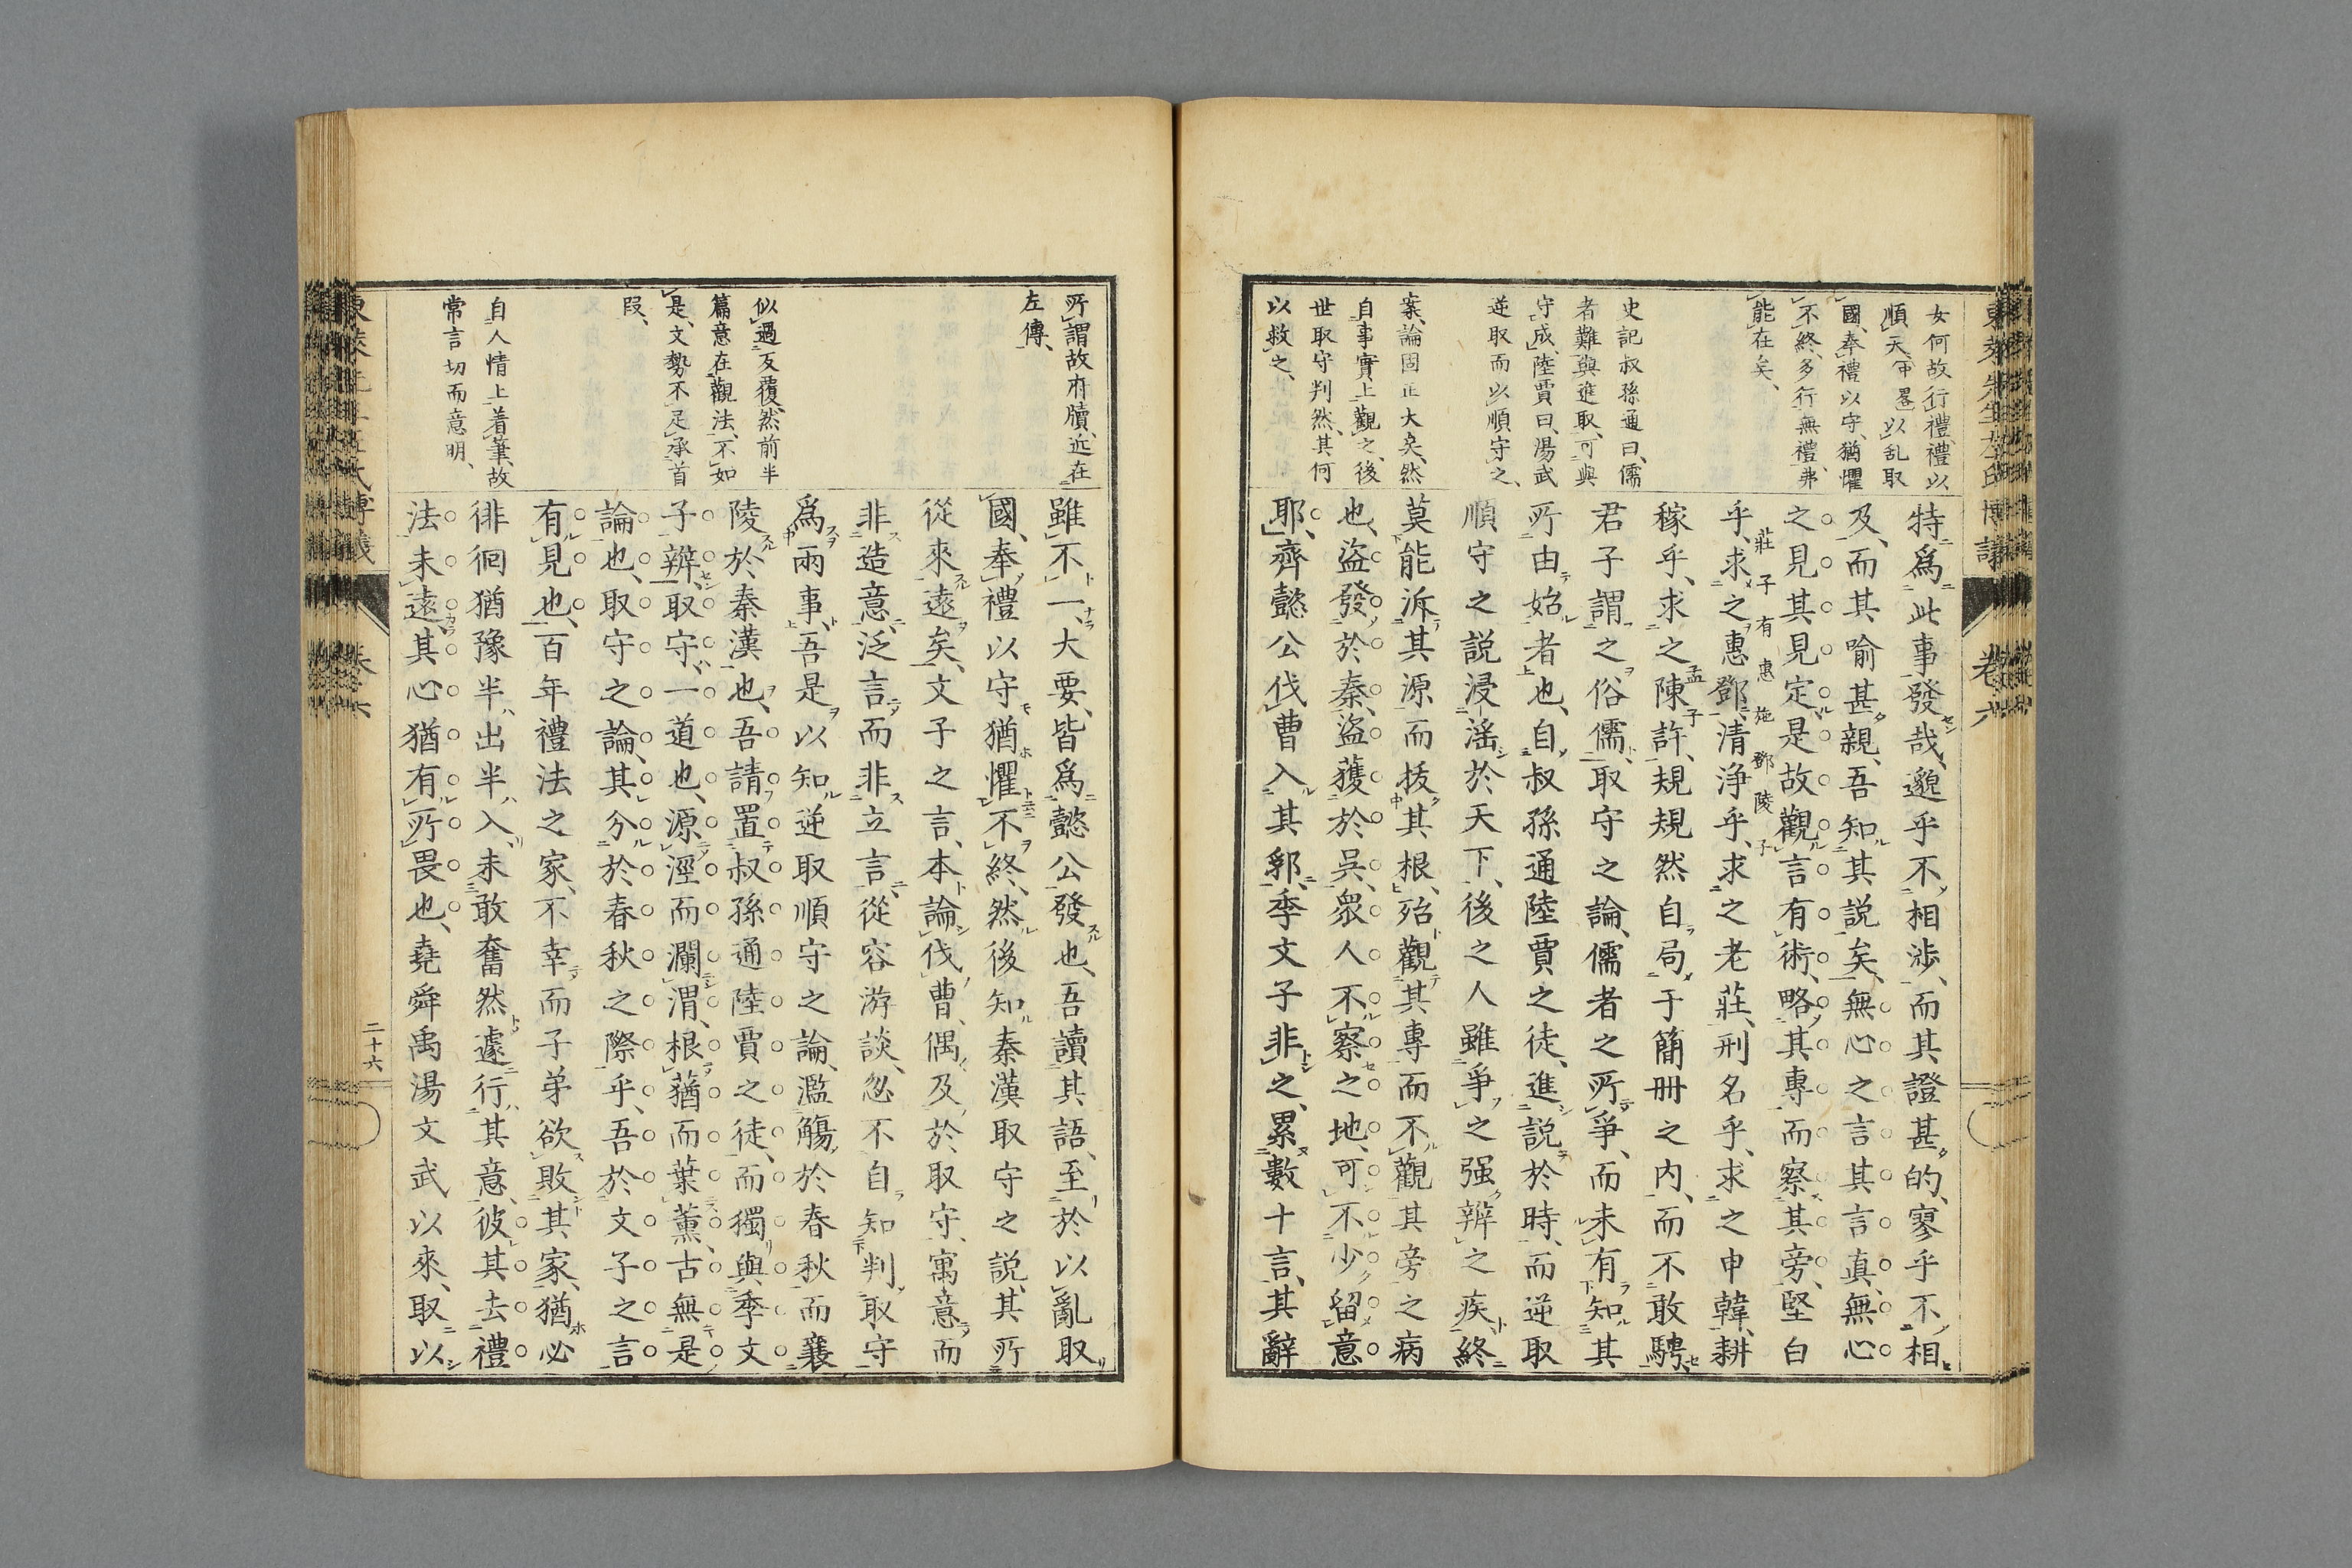 東萊先生左氏博議
卷六
女何故行禮、禮以
順天、(中畧)以乱取
國、奉禮以守、猶懼
不終、多行無禮、弗
能在矣、
史記叔孫通曰、儒
者難與進取、可與
守成、陸賈曰、湯武
逆取而以順守之、
案、論固正大矣、然
自事實上觀之、後
世取守判然、其何
以救之、
特爲此事發哉、邈乎不相涉、而其證甚的、寥乎不相
及、而其喻甚親、吾知其説矣、無心之言其言真、無心
之見其見定、是故觀言有術、略其專而察其旁、堅白
乎、求之惠鄧、清淨乎、求之老莊、刑名乎、求之申韓、耕
莊子有惠施鄧陵子
稼乎、求之陳許、規規然自局于簡冊之内、而不敢騁、
孟子
君子謂之俗儒、取守之論、儒者之所爭、而未有知其
所由始者也、自叔孫通陸賈之徒、進説於時、而逆取
順守之説浸淫於天下、後之人雖爭之强、辨之疾、終
莫能泝其源而拔其根、殆觀其專而不觀其旁之病
也、盜發於秦、盜獲於吳、衆人不察之地、可不少留意
耶、齊懿公伐曹入其郛、季文子非之、累數十言、其辭
所謂故府牘、近在
左傳、
似過反覆、然前半
篇意在觀法、不如
是、文勢不足承首
段、
自人情上着筆、故
常言切而意明、
雖不一、大要、皆爲懿公發也、吾讀其語、至於以亂取
國、奉禮以守猶懼不終、然後知秦漢取守之説、其所
從來遠矣、文子之言、本論伐曹、偶及於取守、寓意而
非造意、泛言而非立言、從容游談、忽不自知判取守
爲兩事、吾是以知逆取順守之論、濫觴於春秋而襄
陵於秦漢也、吾請置叔孫通陸賈之徒、而獨與季文
子辨、取守一道也、源涇而瀾渭、根蕕而葉薰、古無是
論也、取守之論、其分於春秋之際乎、吾於文子之言
有見也、百年禮法之家、不幸而子弟欲敗其家、猶必
徘徊猶豫半出半入、未敢奮然遽行、其意、彼其去禮
法未遠、其心猶有所畏也、堯舜禹湯文武以來、取以
卷六
二十六